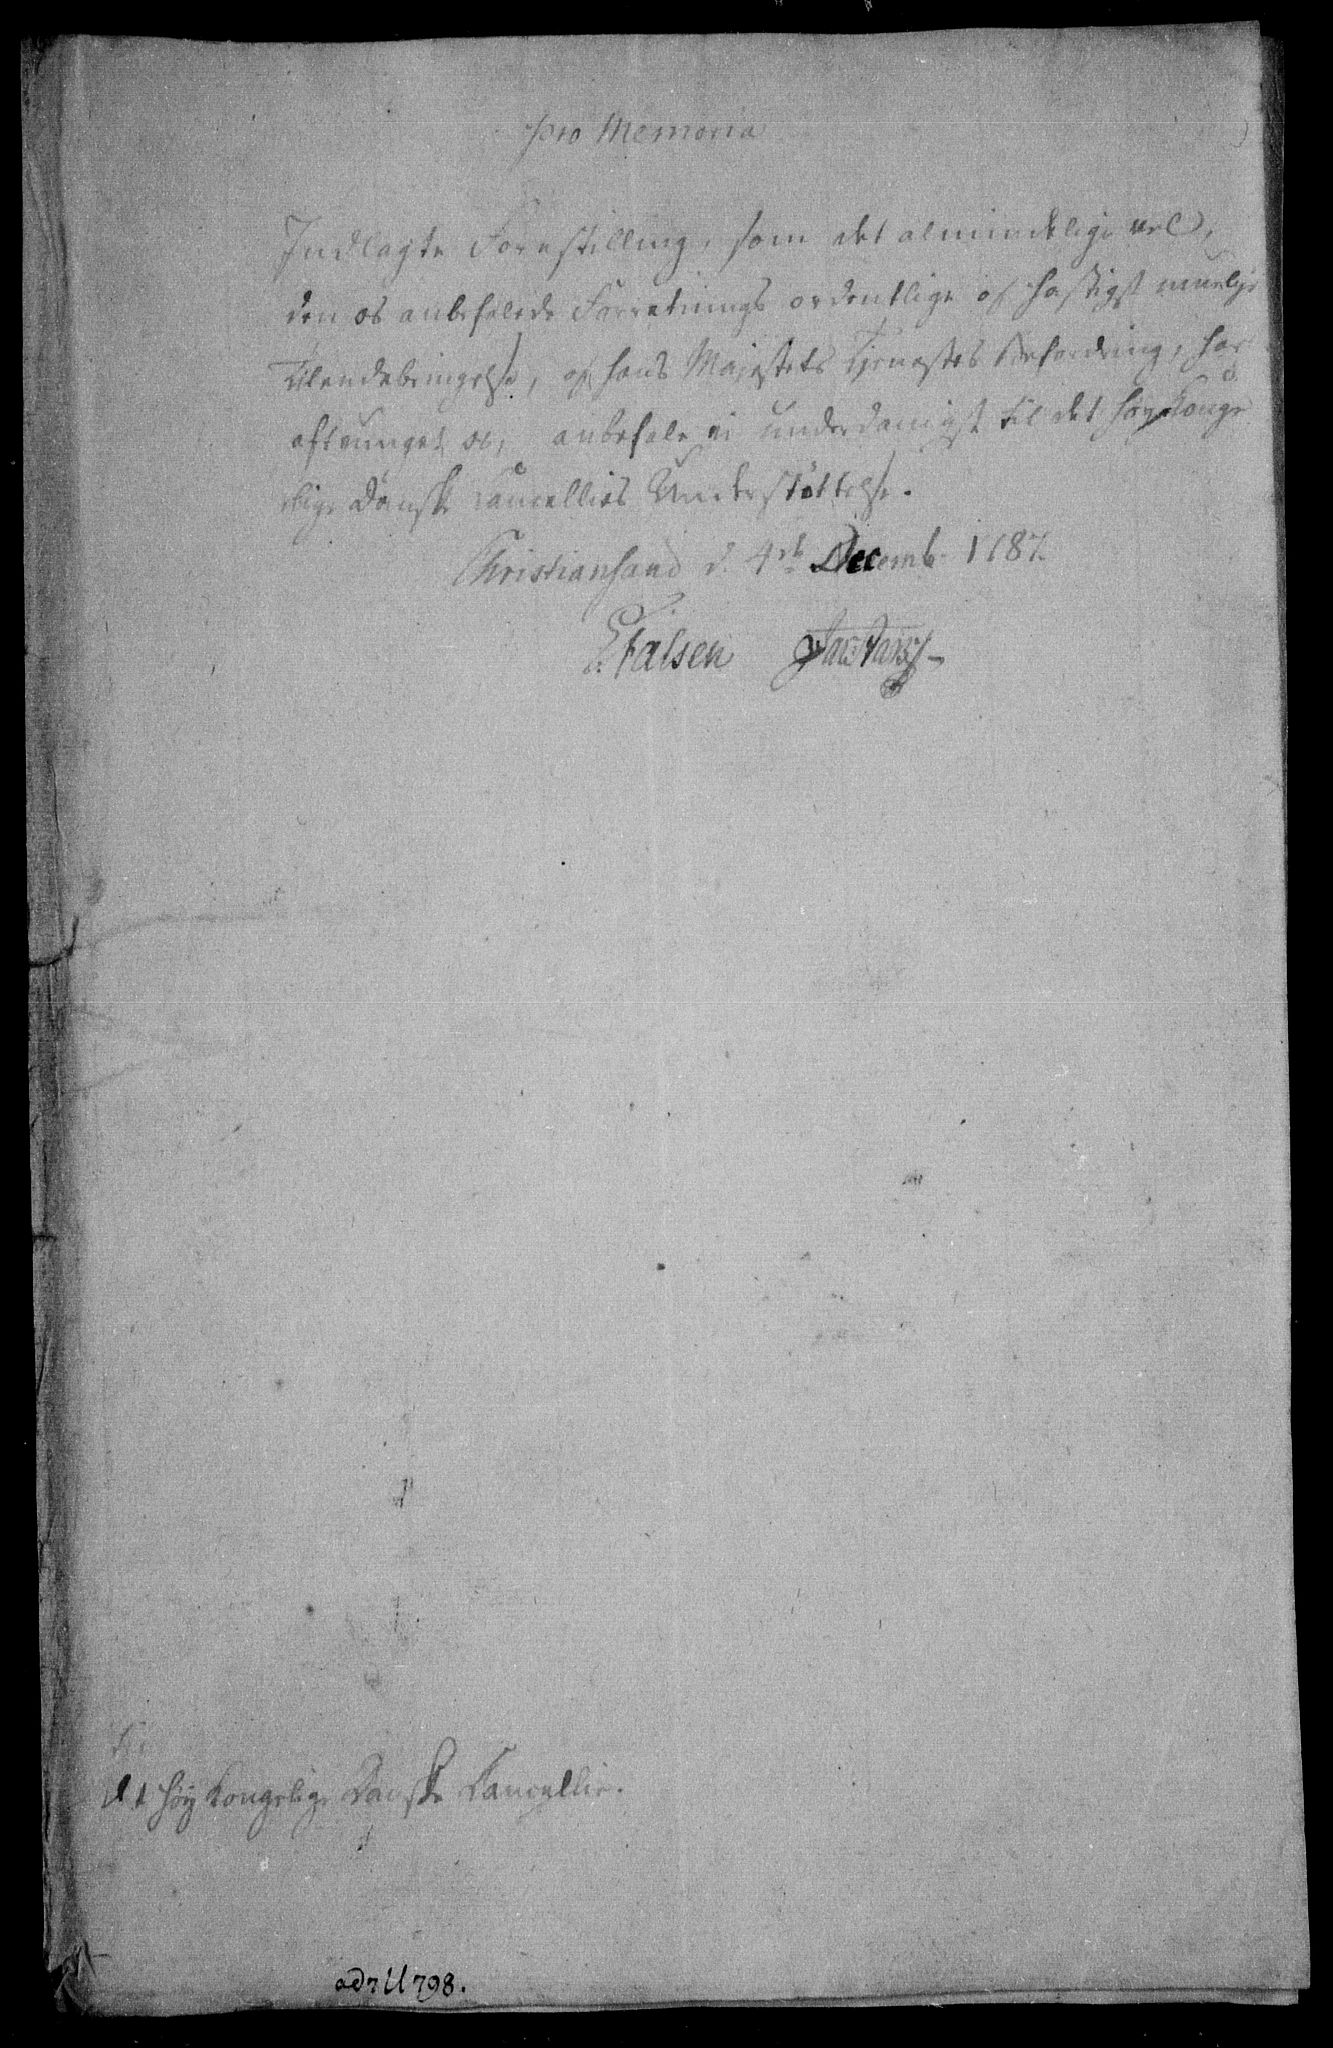 pro Memoria
Indlagte Forestilling, som det almindelige vel,
den os anbefalede Forretnings ordentlige og hastigst muelige
Tilendebringelse, og hans Majestets Tjenestes Befordring, har
aftvunget os, anbefale vi underdanigst til det høy Konge
lige Danske Cancellies Understøttelse.
Christiansand d. 4de Decemb. 1787.
E. Falsen
Til
det høy Kongelige Danske Cancellie.
ad 798.